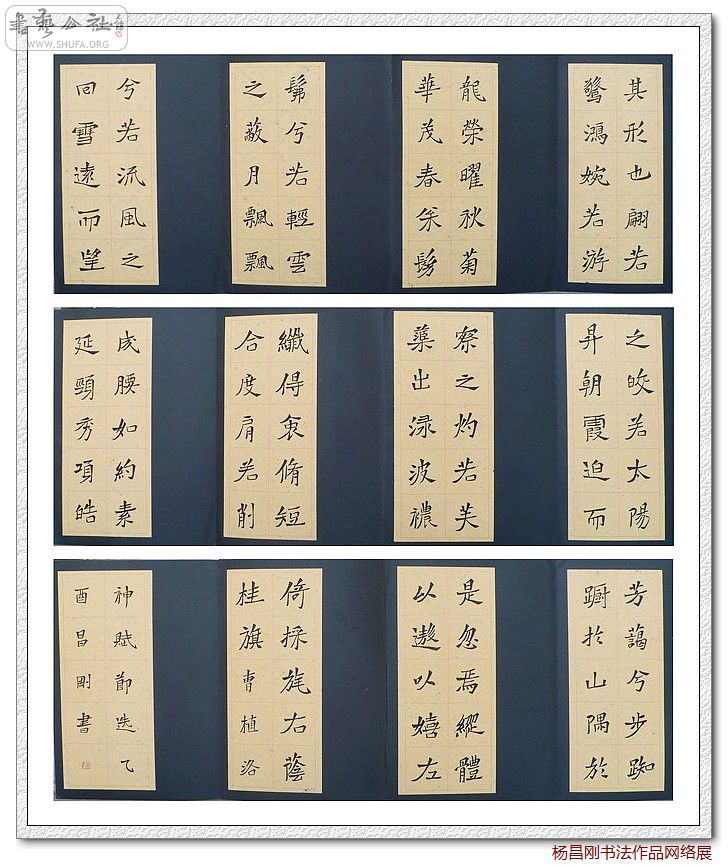 書藝公社
WWW.SHUFA.ORG
其形也翩若
驚鴻婉若游
龍榮曜秋菊
華茂春松髣
髴兮若輕雲
之蔽月飄飄
兮若流風之
回雪遠而望
之皎若太陽
昇朝霞迫而
察之灼若芙
蕖出淥波襛
纖得衷脩短
合度肩若削
成腰如約素
延頸秀項皓
芳藹兮步踟
躕於山隅於
是忽焉縱體
以遨以嬉左
倚採旄右蔭
桂旗曹植洛
神賦節选乙
酉昌剛書
杨昌刚书法作品网络展